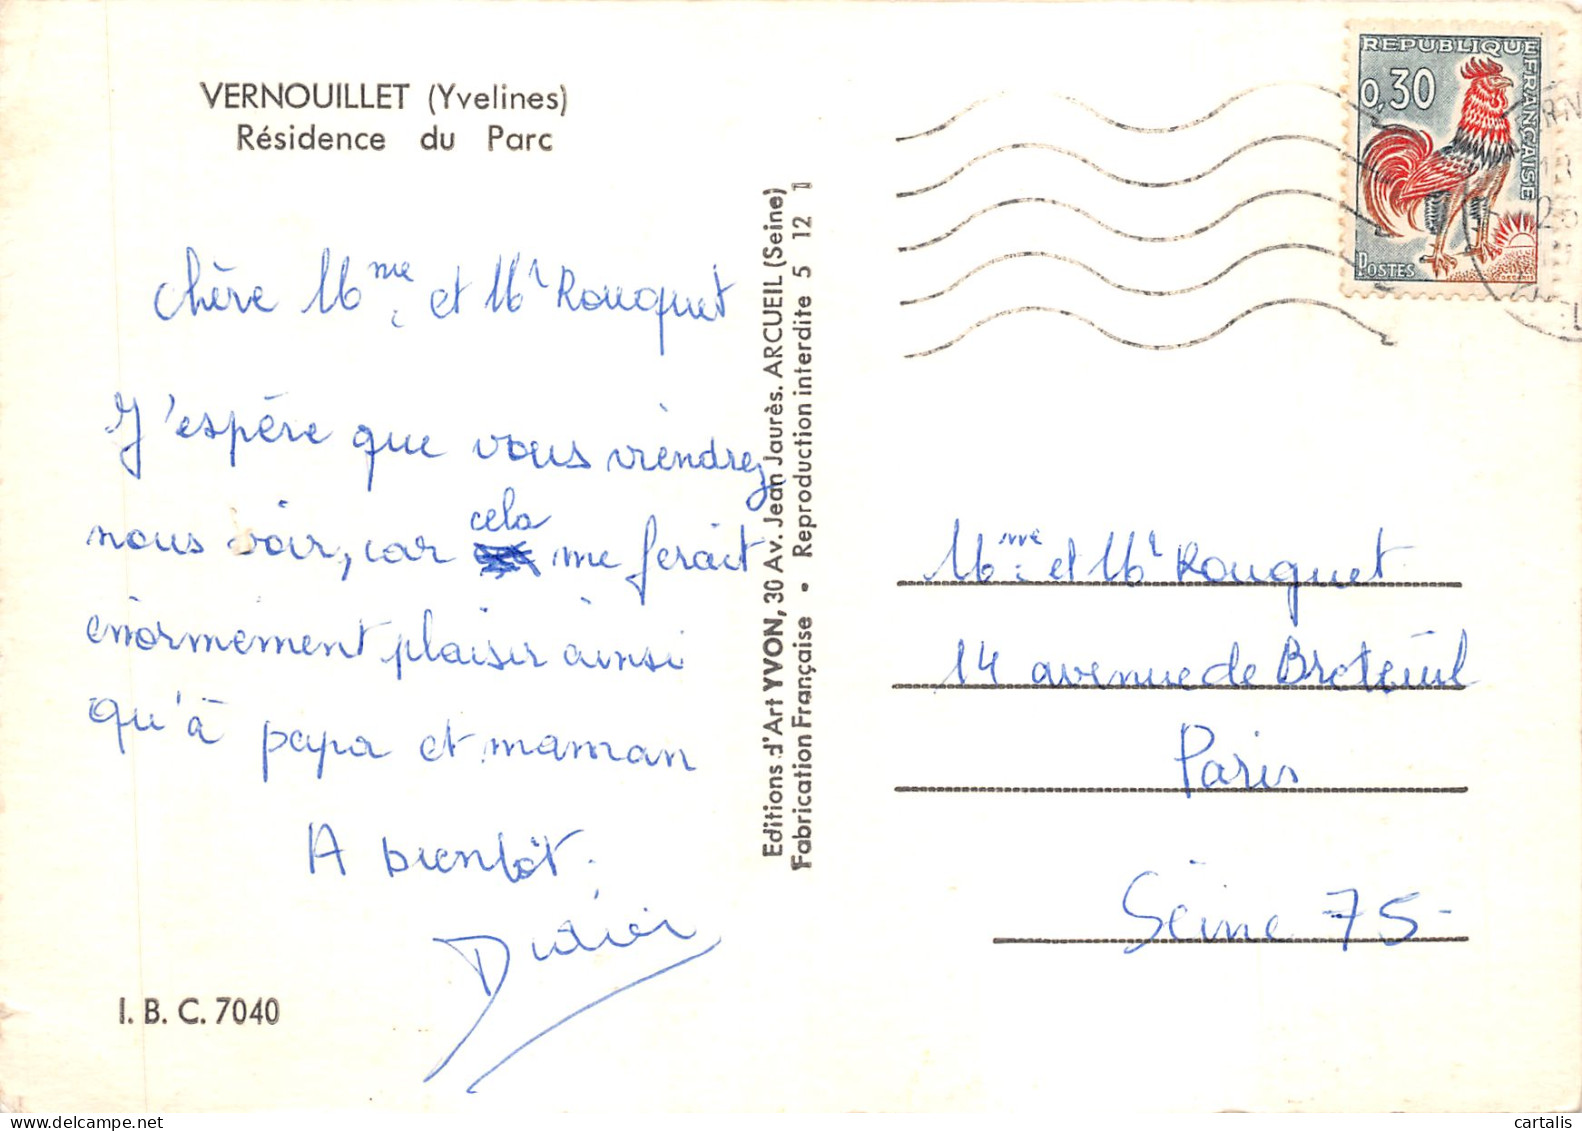 VERNOUILLET (Yvelines)
Résidence du Parc
Chère Mme et Mr Rouquet
J'espère que vous viendrez
nous voir, car cela me ferait
énormement plaisir ainsi
qu'à papa et maman
A bientôt.
Didier
I. B. C. 7040
Editions d'Art YVON, 30 Av. Jean Jaurès. ARCUEIL (Seine)
Fabrication Française • Reproduction interdite 5 12 1
REPUBLIQUE FRANÇAISE
0,30
POSTES
Mme et Mr Rouquet
14 avenue de Breteuil
Paris
Seine 75-
cartalis